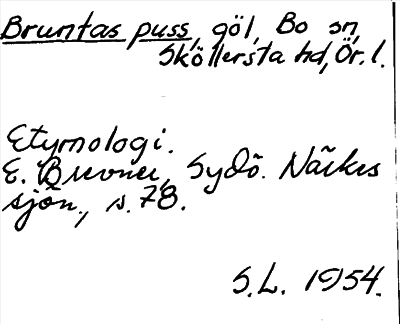 Bruntas puss, göl, Bo sn,
Sköllersta hd, Ör. l.
Etymologi.
E. Brevner, Sydö. Närkes
sjön., s. 78.
S.L. 1954.